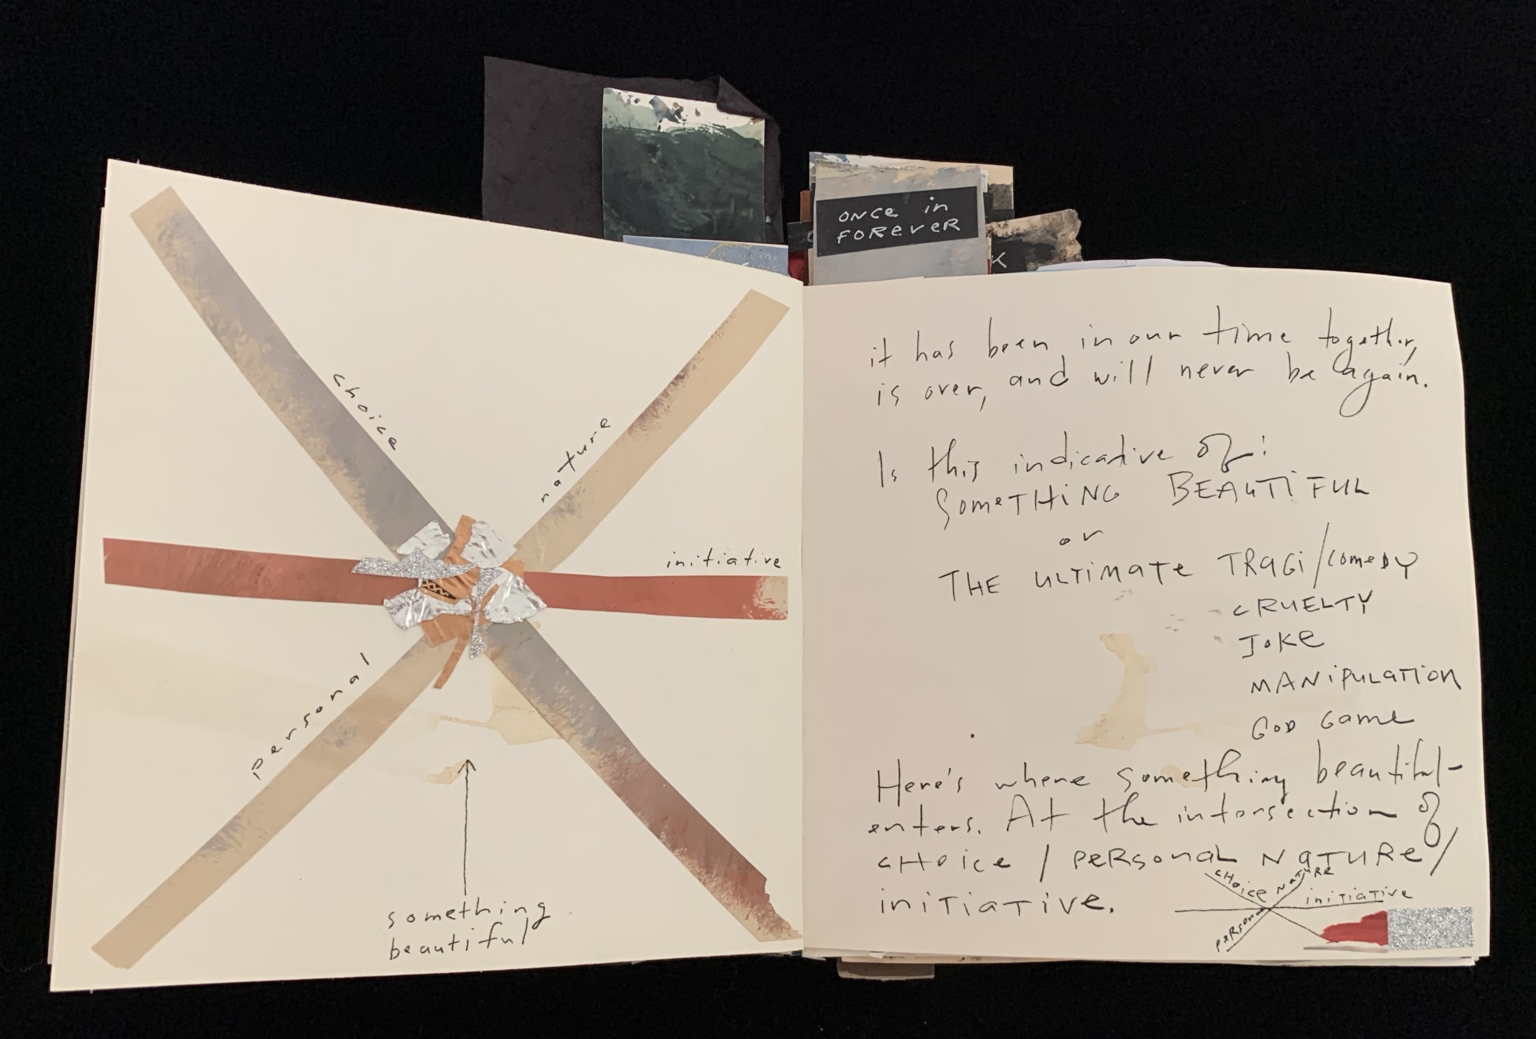 ONCE in
FOREVER
K
choice
nature
initiative
personal
something
beautiful
it has been in our time together,
is over, and will never be again.
Is this indicative of:
SOMETHING BEAUTIFUL
or
THE ULTIMATE TRAGI/COMEDY
CRUELTY
JOKE
MANIPULATION
GOD GAME
Here's where something beautiful-
enters. At the intersection of
CHOICE / PERSONAL NATURE/
INITIATIVE.
CHOICE NATURE
INITIATIVE
PERSONAL